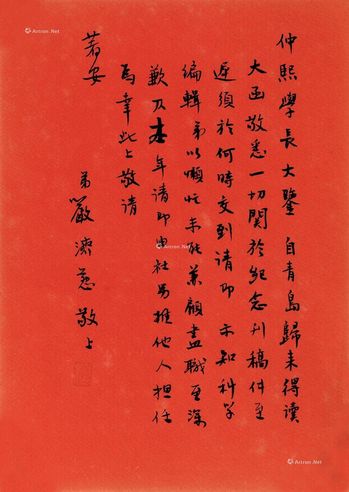 仲熙學長大鑒自青島歸來得讀
大函敬悉一切關於紀念刊稿件至
遲須於何時交到請即示知科学
編輯弟以順忙未能兼顧盡職至深
歉仄本年請即由社另推他人担任
爲幸此上敬請
著安
弟嚴濟慈敬上
Artron.Net
Artron.Net
Artron.Net